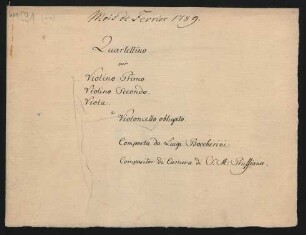 Mois de Fevrier 1789.
Quartettino
per
Violino Primo
Violino Secondo.
Viola.
e Violoncello obligato
Composta da Luigi Boccherini
Compositor di Camera di S. M. Prussiana.